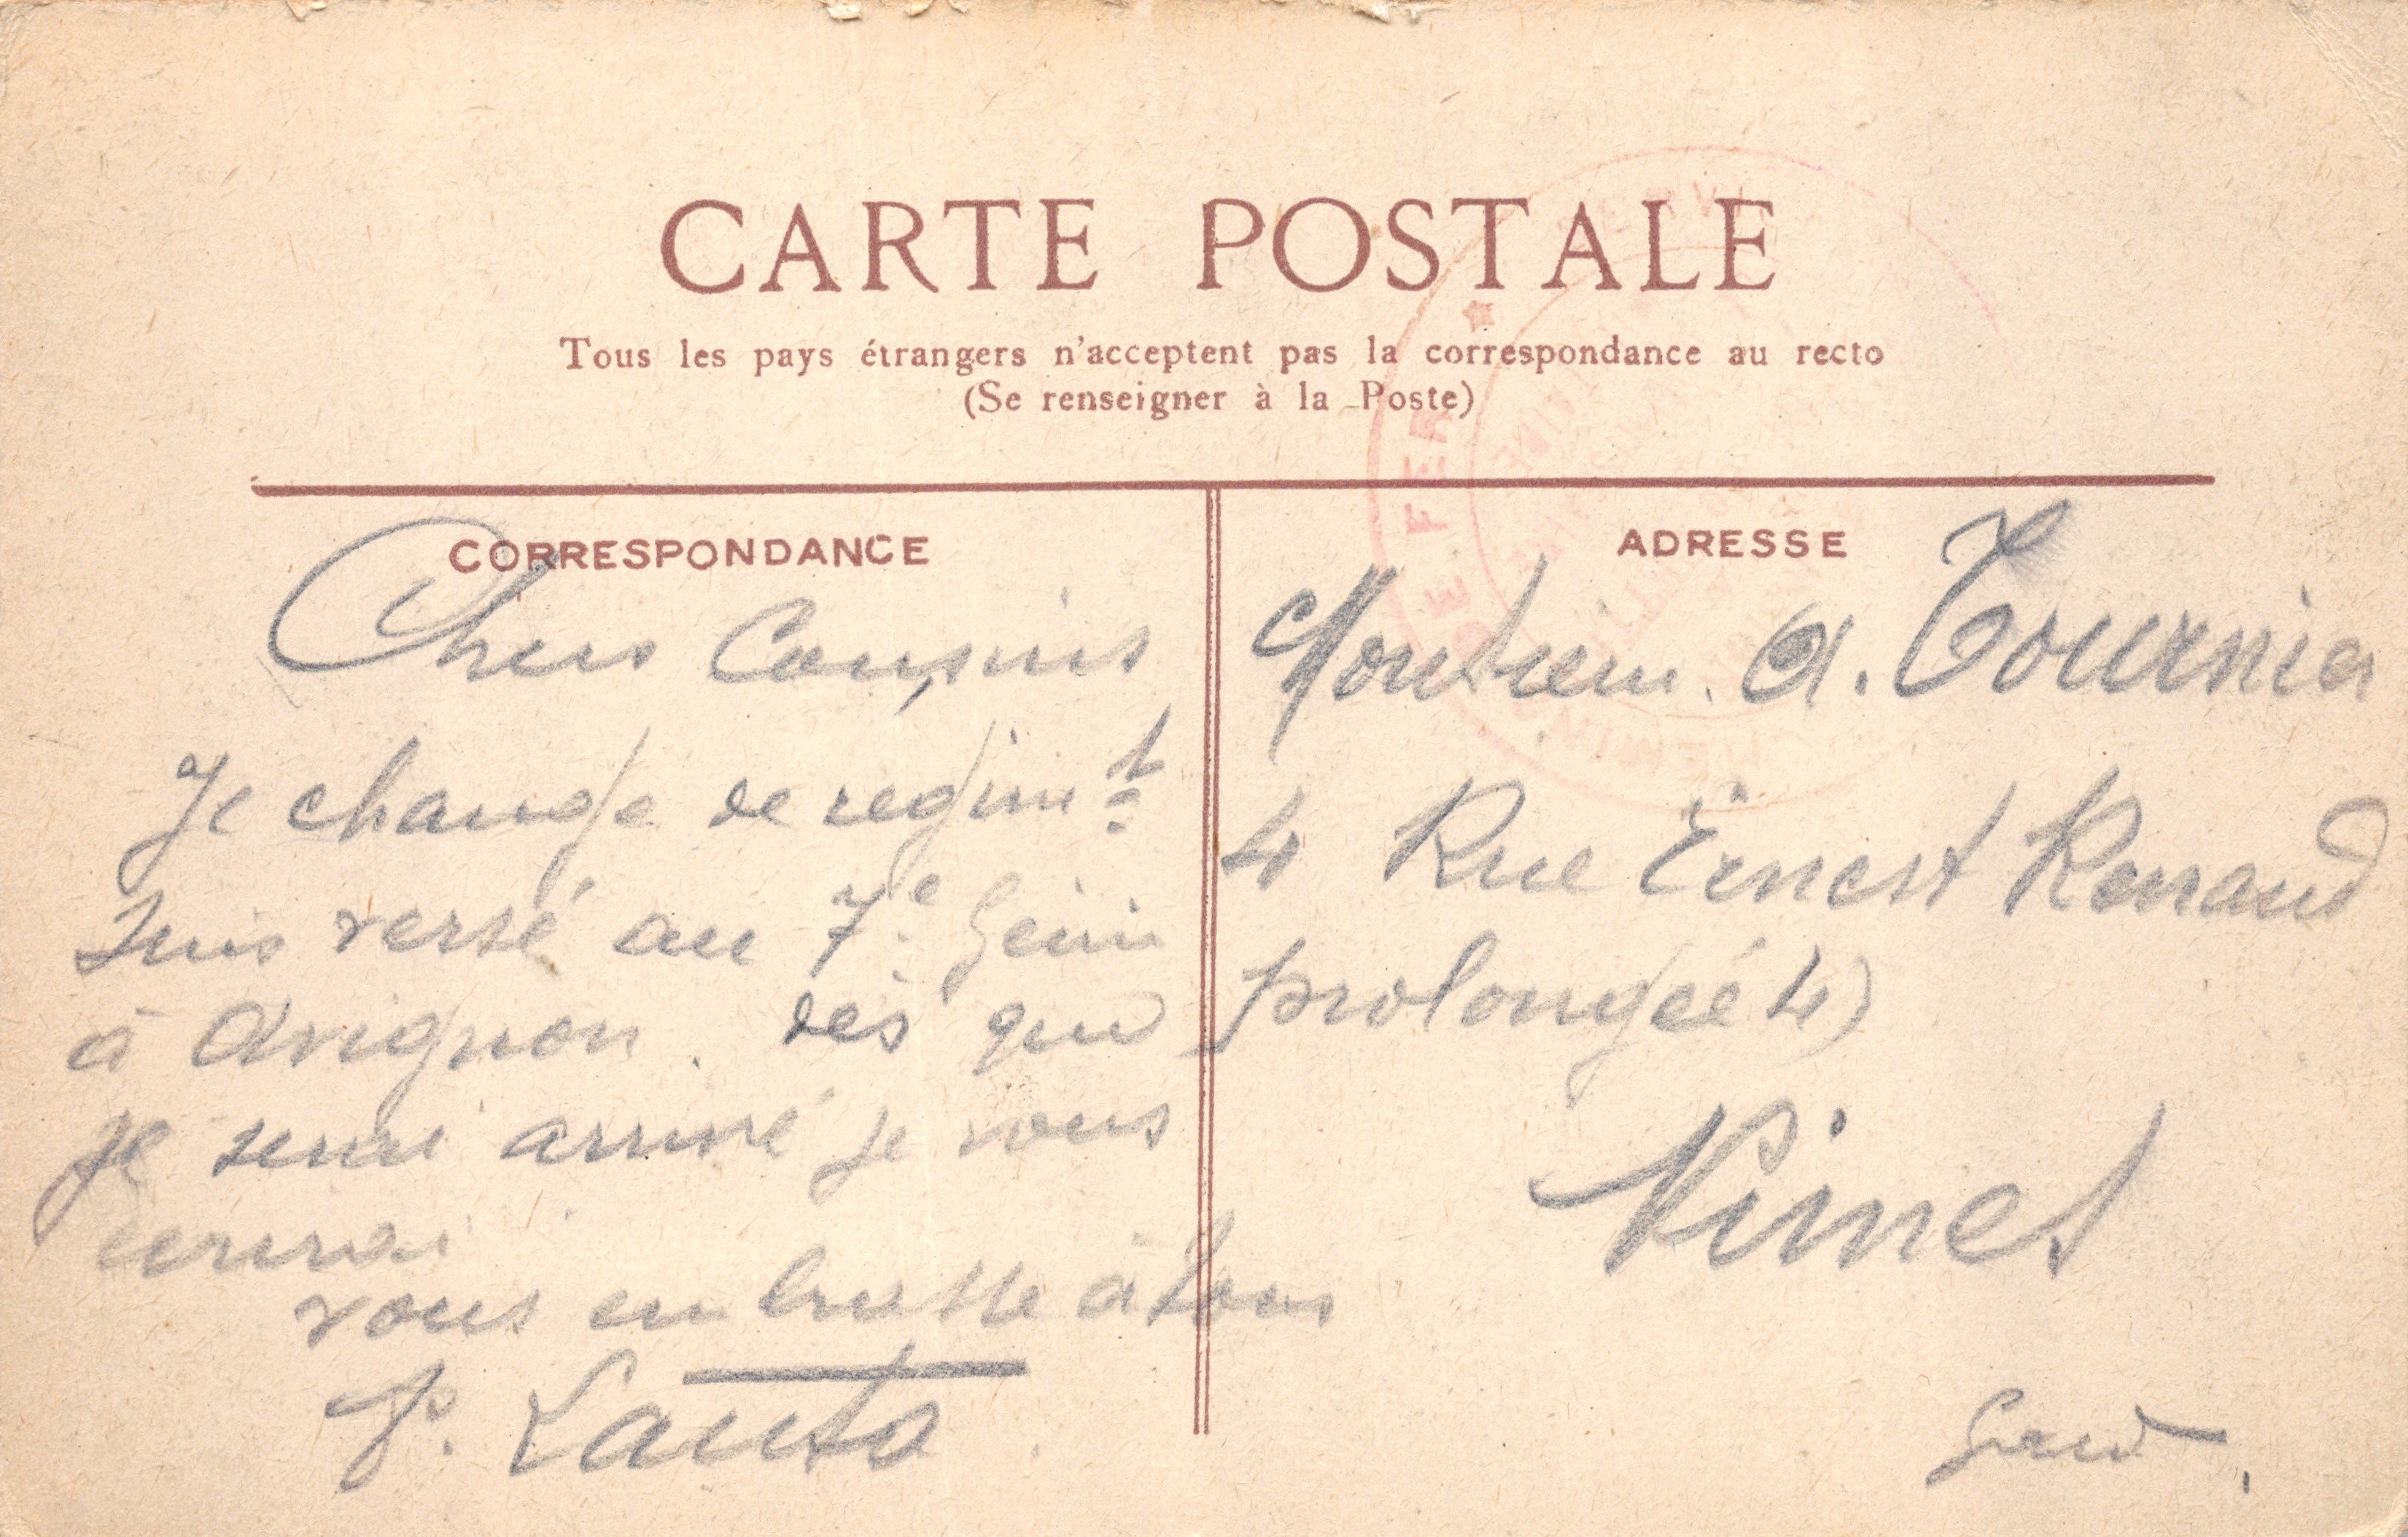 CARTE POSTALE
Tous les pays étrangers n'acceptent pas la correspondance au recto
(Se renseigner à la Poste)
CORRESPONDANCE
Chers Cousins
Je change de regimt
suis versé au 7e Génie
à Avignon. dès que
je serai arrivé je vous
ecrirai
vous embrasse à tous
P. Lauta
ADRESSE
Monsieur. A. Tournier
4 Rue Ernest Renaud
prolongée 4)
Nimes
Gard.
DE FER